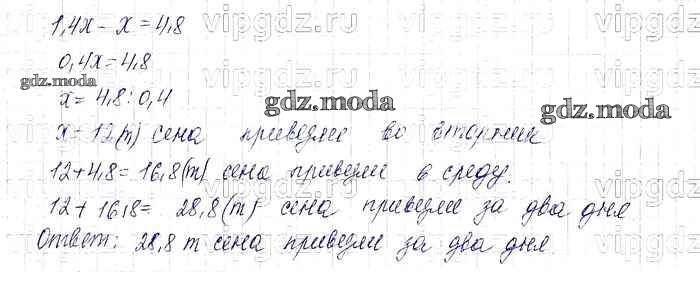 1,4x - x = 4,8
0,4x = 4,8
x = 4,8 : 0,4
x = 12(т) сена привезли во вторник
12 + 4,8 = 16,8(т) сена привезли в среду.
12 + 16,8 = 28,8(т) сена привезли за два дня
Ответ: 28,8 т сена привезли за два дня.
gdz.moda
gdz.moda
gdz.moda
vipgdz
vipgdz
vipgdz